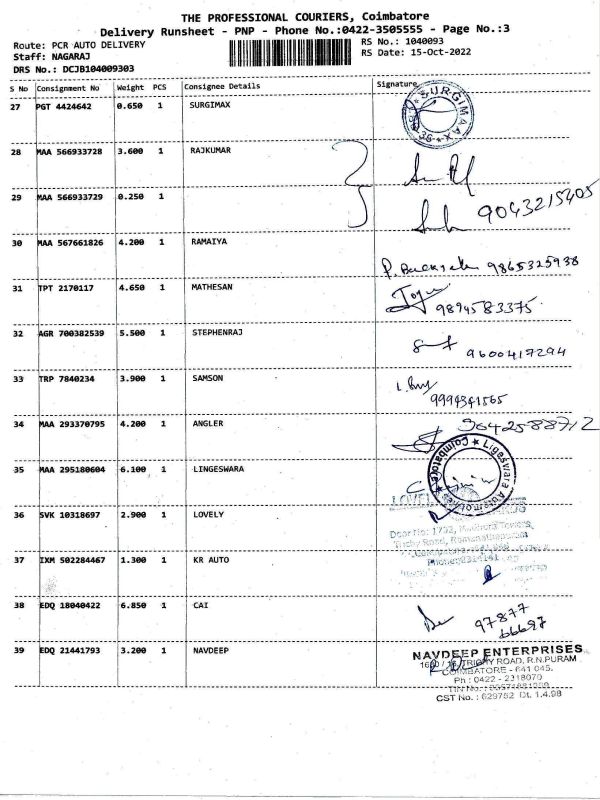 THE PROFESSIONAL COURIERS, Coimbatore
Delivery Runsheet - PNP - Phone No.:0422-3505555 - Page No.:3
Route: PCR AUTO DELIVERY
RS No.: 1040093
Staff: NAGARAJ
RS Date: 15-Oct-2022
DRS No.: DCJB104009303
S No Consignment No Weight PCS Consignee Details Signature
27 PGT 4424642 0.650 1 SURGIMAX
SURGIMAX
28 MAA 566933728 3.600 1 RAJKUMAR
29 MAA 566933729 0.250 1
9043215405
30 MAA 567661826 4.200 1 RAMAIYA
9865325938
31 TPT 2170117 4.650 1 MATHESAN
9894583375
32 AGR 700382539 5.500 1 STEPHENRAJ
9600417294
33 TRP 7840234 3.900 1 SAMSON
9994341565
34 MAA 293370795 4.200 1 ANGLER
9642588712
35 MAA 295180604 6.100 1 LINGESWARA
Coimbatore
36 SVK 10318697 2.900 1 LOVELY
37 IXM 502284467 1.300 1 KR AUTO
38 EDQ 18040422 6.850 1 CAI
97877
66697
39 EDQ 21441793 3.200 1 NAVDEEP
NAVDEEP ENTERPRISES
TRICHY ROAD, R.N.PURAM
COIMBATORE - 641 045.
Ph : 0422 - 2318070
CST No. : 629762 Dt. 1.4.98